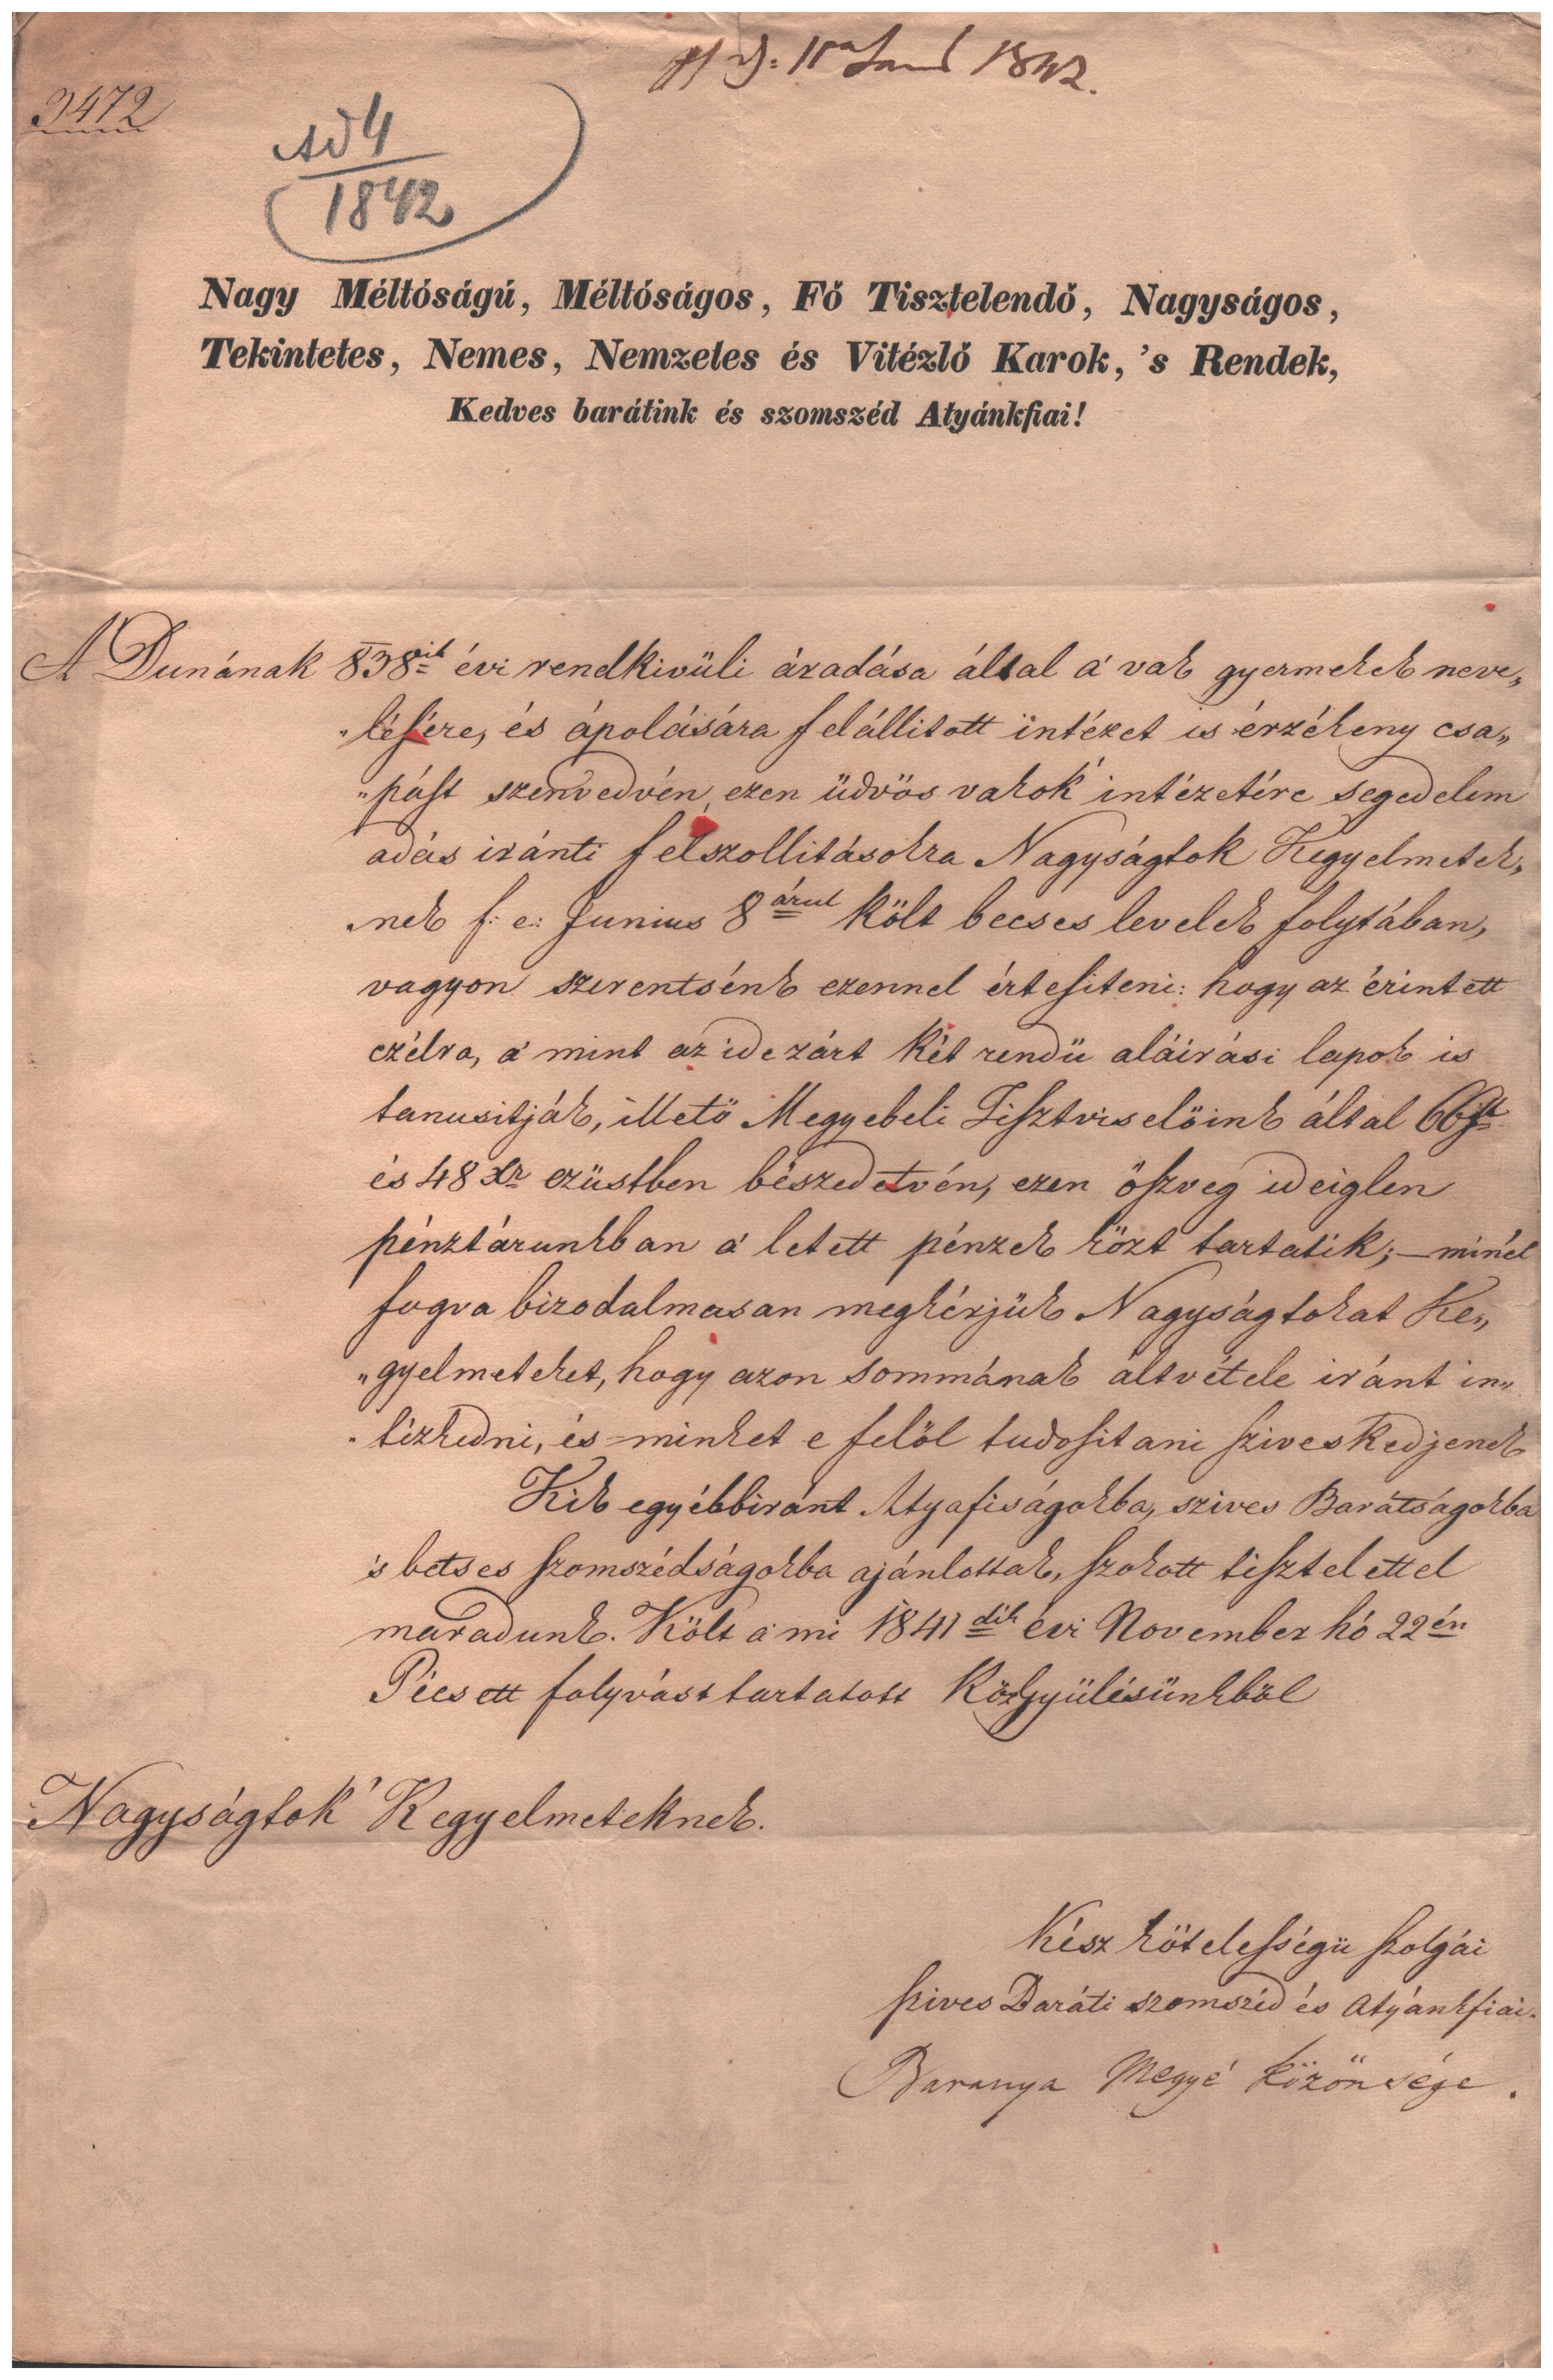 1842.
3472
Ad 4
1842
Nagy Méltóságú, Méltóságos, Fő Tisztelendő, Nagyságos,
Tekintetes, Nemes, Nemzetes és Vitézlő Karok, 's Rendek,
Kedves barátink és szomszéd Atyánkfiai!
A Dunának 838ik évi rendkivüli áradása által a' vak gyermekek neve„
„lésére, és ápolására felállitott intézet is érzékeny csa„
„pást szenvedvén, ezen üdvös vakok' intézetére segedelem
adás iránti felszollitásokra Nagyságtok Kegyelmetek„
„nek f: e: Junius 8árul költ becses levelek folytában,
vagyon szerentsénk ezennel értesiteni: hogy az érintett
czélra, a' mint az ide zárt két rendü aláirási lapok is
tanusitják, illető Megyebeli Tisztviselőink által 66ft
és 48 xr ezüstben bészedetvén, ezen öszveg ideiglen
pénztárunkban a' letett pénzek közt tartatik; – minél
fogva bizodalmasan megkérjük Nagyságtokat Ke„
„gyelmeteket, hogy azon sommának általvétele iránt in„
„tézkedni, és minket e felől tudositani sziveskedjenek
Kik egyébbiránt Atyafiságokba, szives Barátságokba
's betses szomszédságokba ajánlottak, szokott tisztelettel
maradunk. Költ a' mi 1841dik évi November hó 22én
Pécsett folyvást tartatott Közgyülésünkből
Nagyságtok' Kegyelmeteknek.
Kész kötelességü szolgái
szives Baráti szomszéd és Atyánkfiai.
Baranya Megye' közönsége.